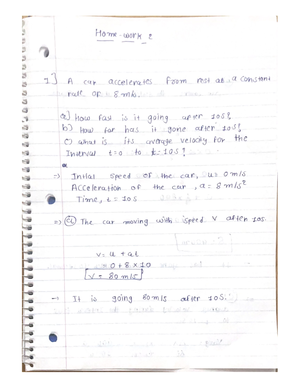 Home-work 2
1] A car accelerates from rest at a constant
rate of 8 m/s.
a) How fast is it going after 10s?
b) How far has it gone after 10s?
c) what is its average velocity for the
Interval t=0 to t=10s?
→ Initial speed of the car, u = 0 m/s
Acceleration of the car, a = 8 m/s²
Time, t = 10s
⇒ a) The car moving with speed V after 10s.
v = u + at
= 0 + 8 × 10
[V = 80 m/s]
→ It is going 80 m/s after 10s.